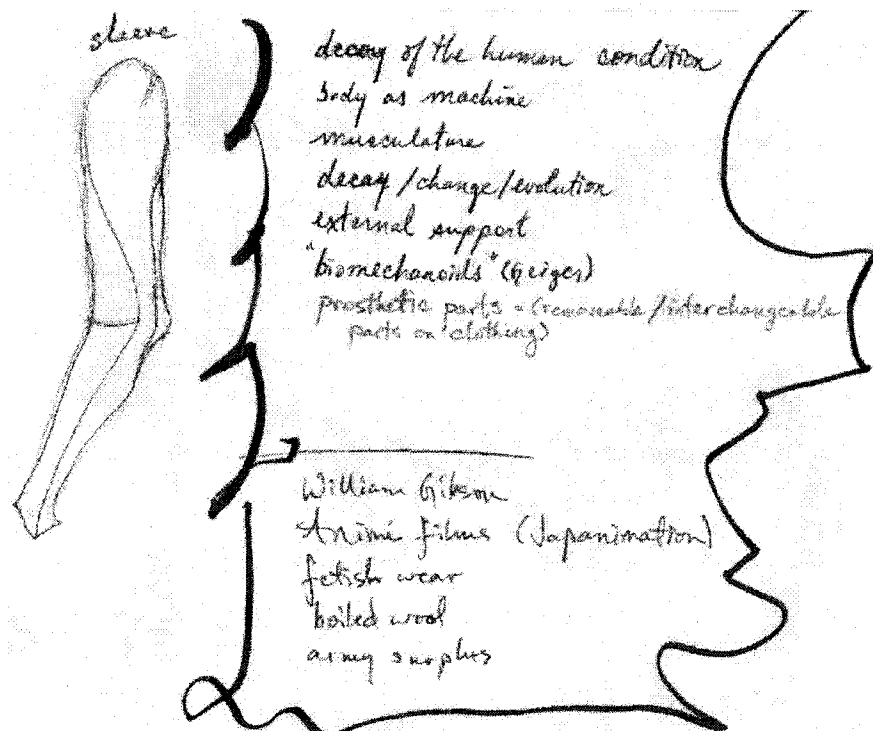 sleeve
decay of the human condition
body as machine
musculature
decay/change/evolution
external support
"biomechanoids" (Geiger)
prosthetic parts - (removable/interchangeable
parts on clothing)
William Gibson
Animé films (Japanimation)
fetish wear
boiled wool
army surplus